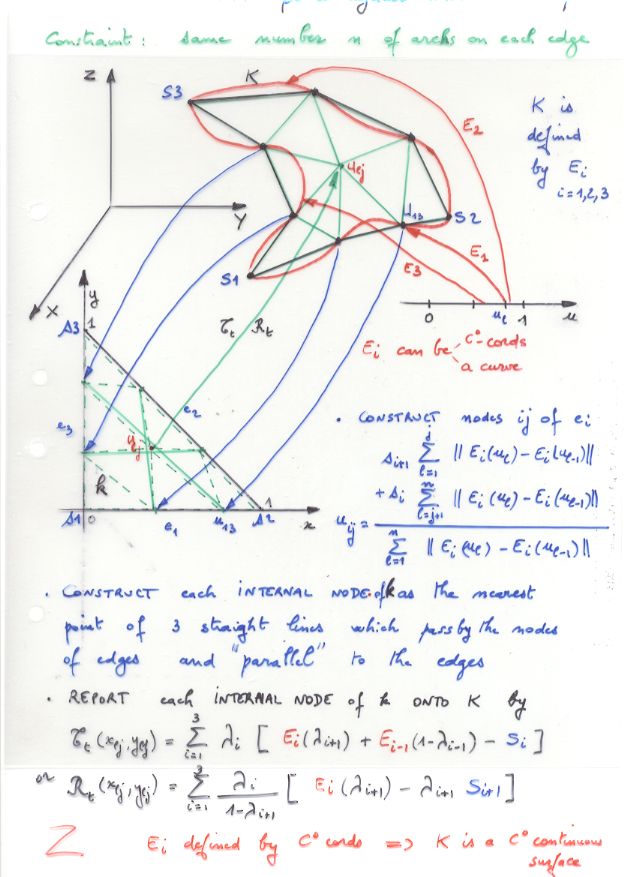 Constraint : same number n of archs on each edge
Z
K
S3
E2
K is
defined
by Ei
i=1,2,3
Y
u13
S2
S1
E3
E1
X
y
0
uℓ
1
u
s3
1
𝒯t Rt
Ei can be C°-cords
a curve
e2
e3
k
s1
0
e1
u13
s2
1
x
. CONSTRUCT nodes ij of ei
uij = ( si+1 ∑ℓ=1^j ‖ Ei(uℓ) − Ei(uℓ-1) ‖
+ si ∑ℓ=j+1^n ‖ Ei(uℓ) − Ei(uℓ-1) ‖ )
/ ∑ℓ=1^n ‖ Ei(uℓ) − Ei(uℓ-1) ‖
. CONSTRUCT each INTERNAL NODE of k as the nearest
point of 3 straight lines which pass by the nodes
of edges and "parallel" to the edges
. REPORT each INTERNAL NODE of k ONTO K by
𝒯t (xℓj, yℓj) = ∑i=1^3 λi [ Ei(λi+1) + Ei-1(1-λi-1) − Si ]
or Rt (xℓj, yℓj) = ∑i=1^3 λi/(1-λi+1) [ Ei(λi+1) − λi+1 Si+1 ]
Z Ei defined by C° cords => K is a C° continuous
surface